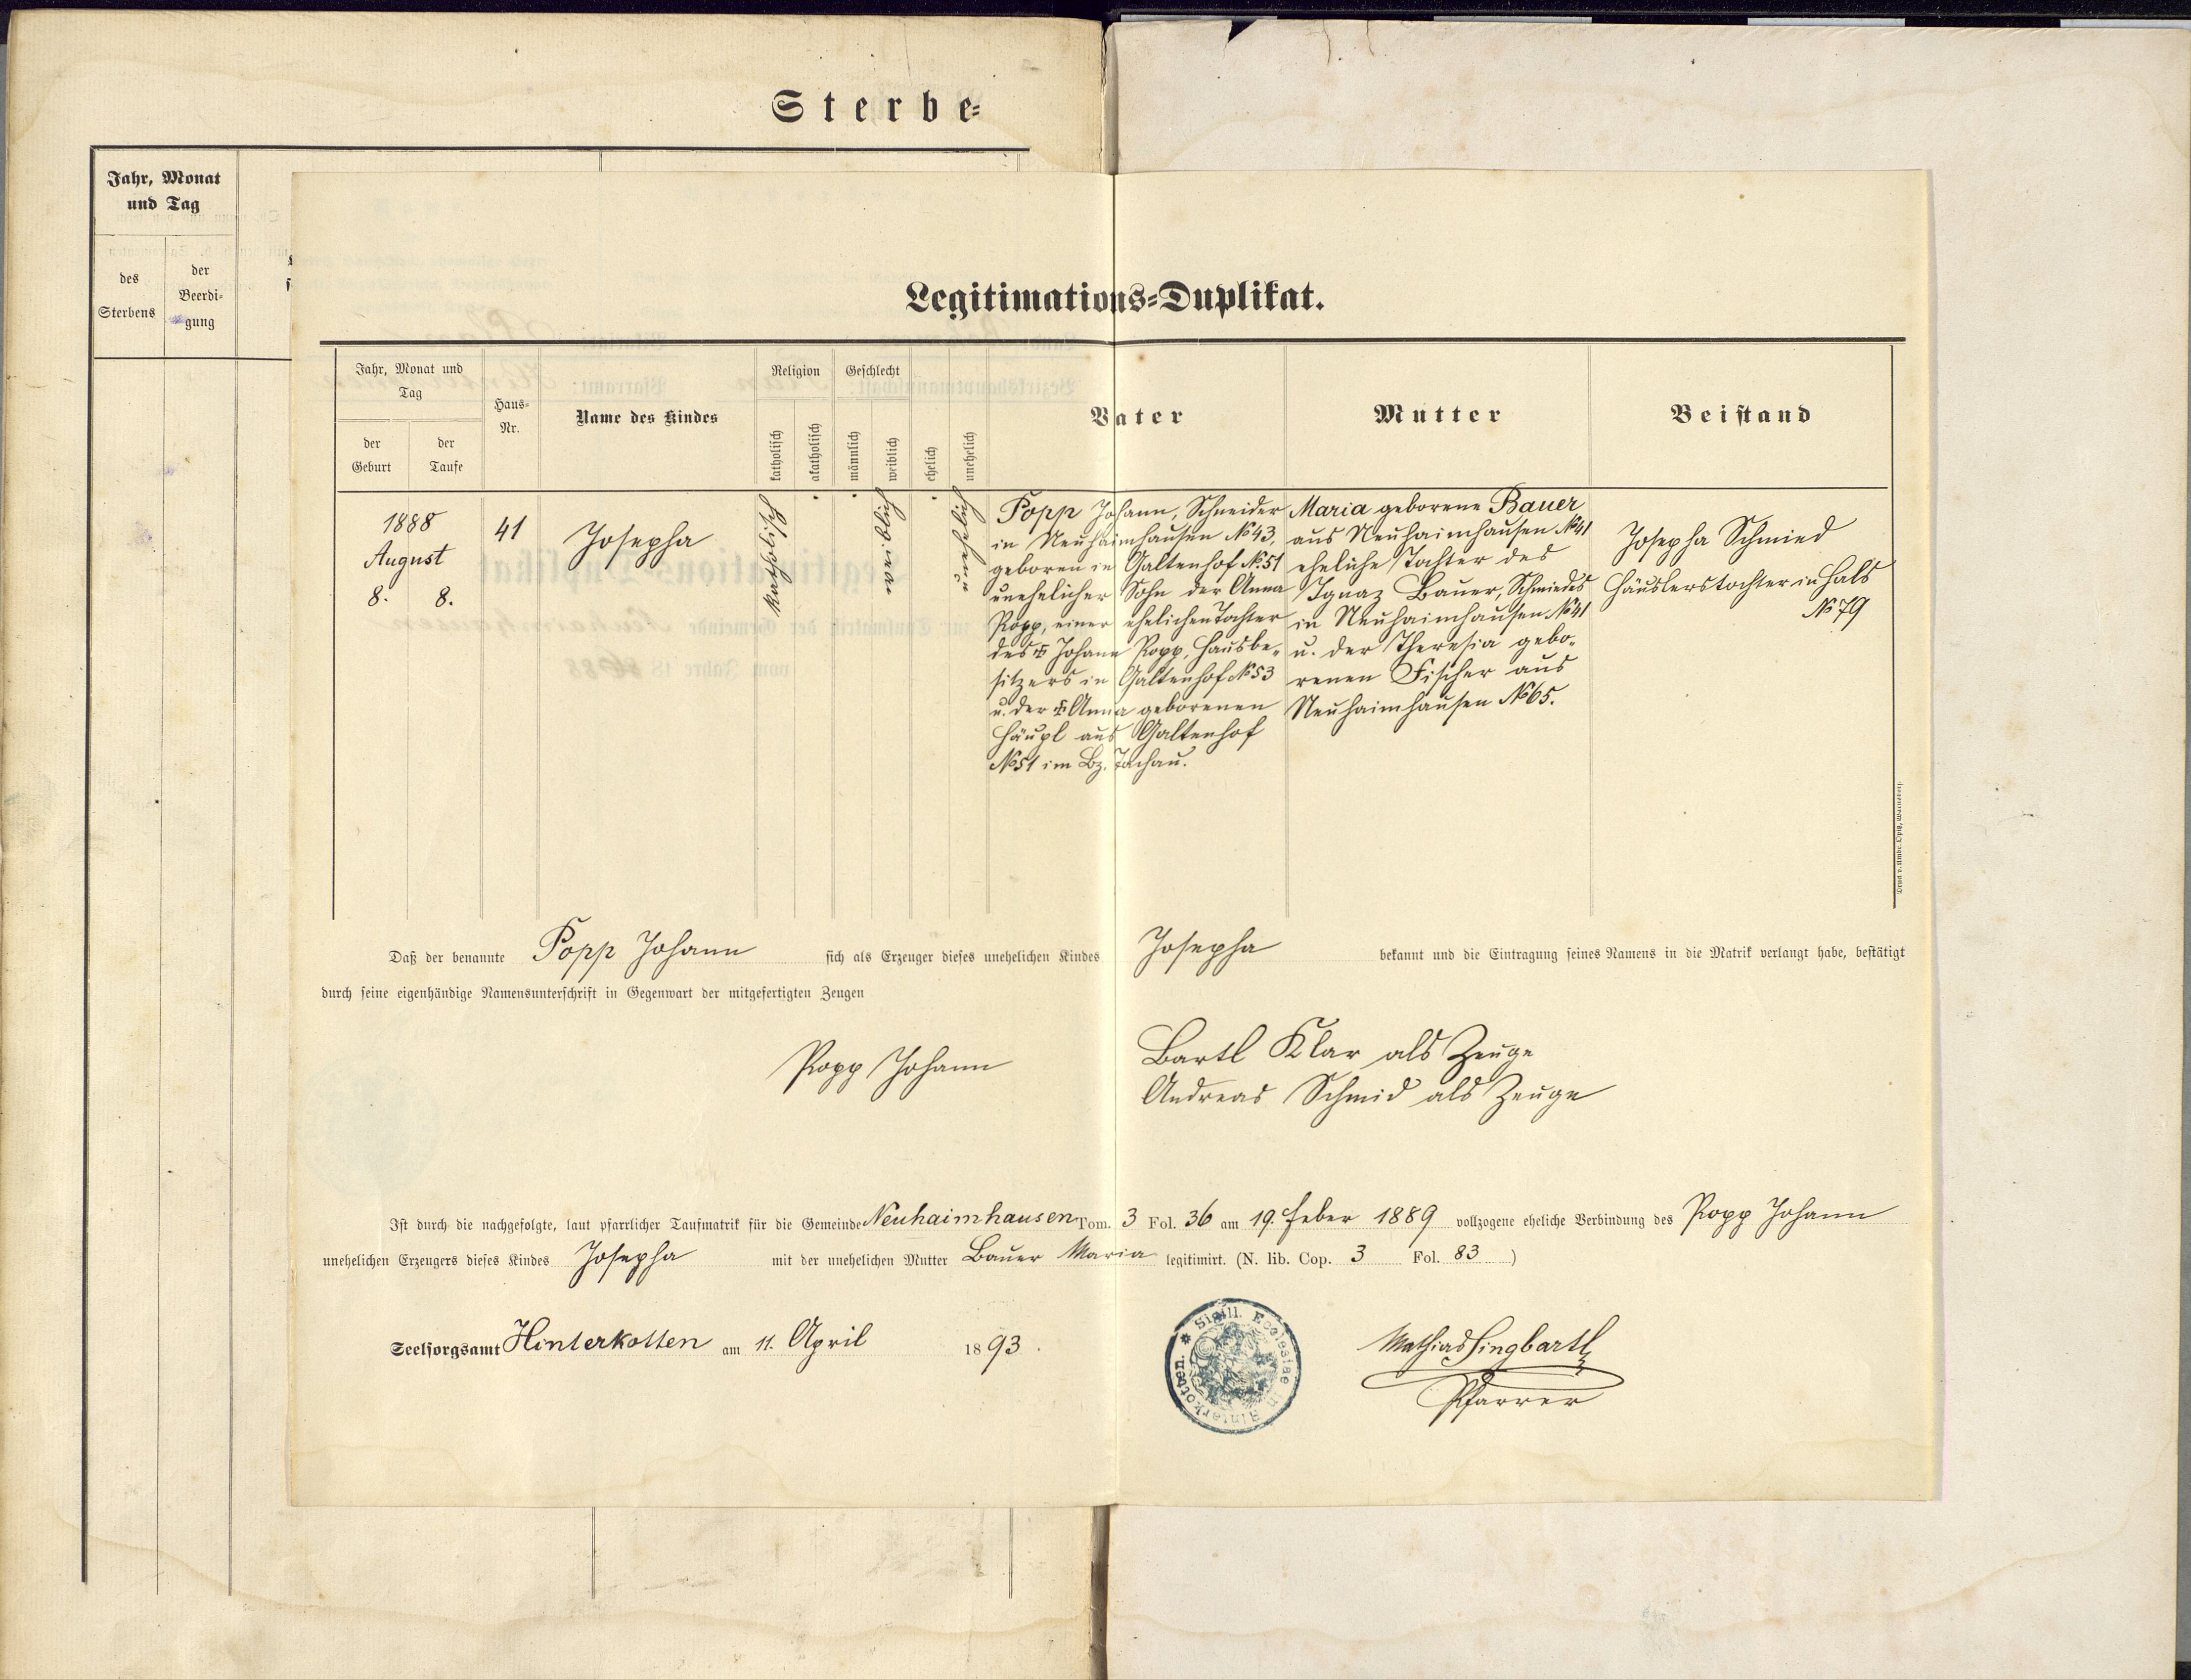 Sterbe=
Jahr, Monat
und Tag
des
Sterbens
der
Beerdi=
gung
Legitimations=Duplikat.
Jahr, Monat und
Tag
der
Geburt
der
Taufe
Haus=
Nr.
Name des Kindes
Religion
katholisch
akatholisch
Geschlecht
männlich
weiblich
ehelich
unehelich
Vater
Mutter
Beistand
1888
August
8. 8.
41
Josepha
katholisch
weiblich
unehelich
Popp Johann, Schneider
in Neuhaimhausen №43,
geboren in Galtenhof №51
unehelicher Sohn der Anna
Popp, einer ehelichen Tochter
des ✠ Johann Popp, Hausbe=
sitzers in Galtenhof №53
u. der ✠ Anna geborenen
Häupl aus Galtenhof
№51 im Bz. Tachau.
Maria geborene Bauer
aus Neuhaimhausen №41
eheliche Tochter des
Ignaz Bauer, Schmiedes
in Neuhaimhausen №41
u. der Theresia gebo=
renen Fischer aus
Neuhaimhausen №65.
Josepha Schmied
Häuslerstochter in Hals
№79
Daß der benannte Popp Johann sich als Erzeuger dieses unehelichen Kindes Josepha bekannt und die Eintragung seines Namens in die Matrik verlangt habe, bestätigt
durch seine eigenhändige Namensunterschrift in Gegenwart der mitgefertigten Zeugen
Popp Johann
Bartl Klar als Zeuge
Andreas Schmid als Zeuge
Ist durch die nachgefolgte, laut pfarrlicher Taufmatrik für die Gemeinde Neuhaimhausen Tom. 3 Fol. 36 am 19. Feber 1889 vollzogene eheliche Verbindung des Popp Johann
unehelichen Erzeugers dieses Kindes Josepha mit der unehelichen Mutter Bauer Maria legitimirt. (N. lib. Cop. 3 Fol. 83 )
Seelsorgsamt Hinterkotten am 11. April 1893.
* Sigill. Ecclesiae in Hinterkotten.
Mathias Singbartl
Pfarrer